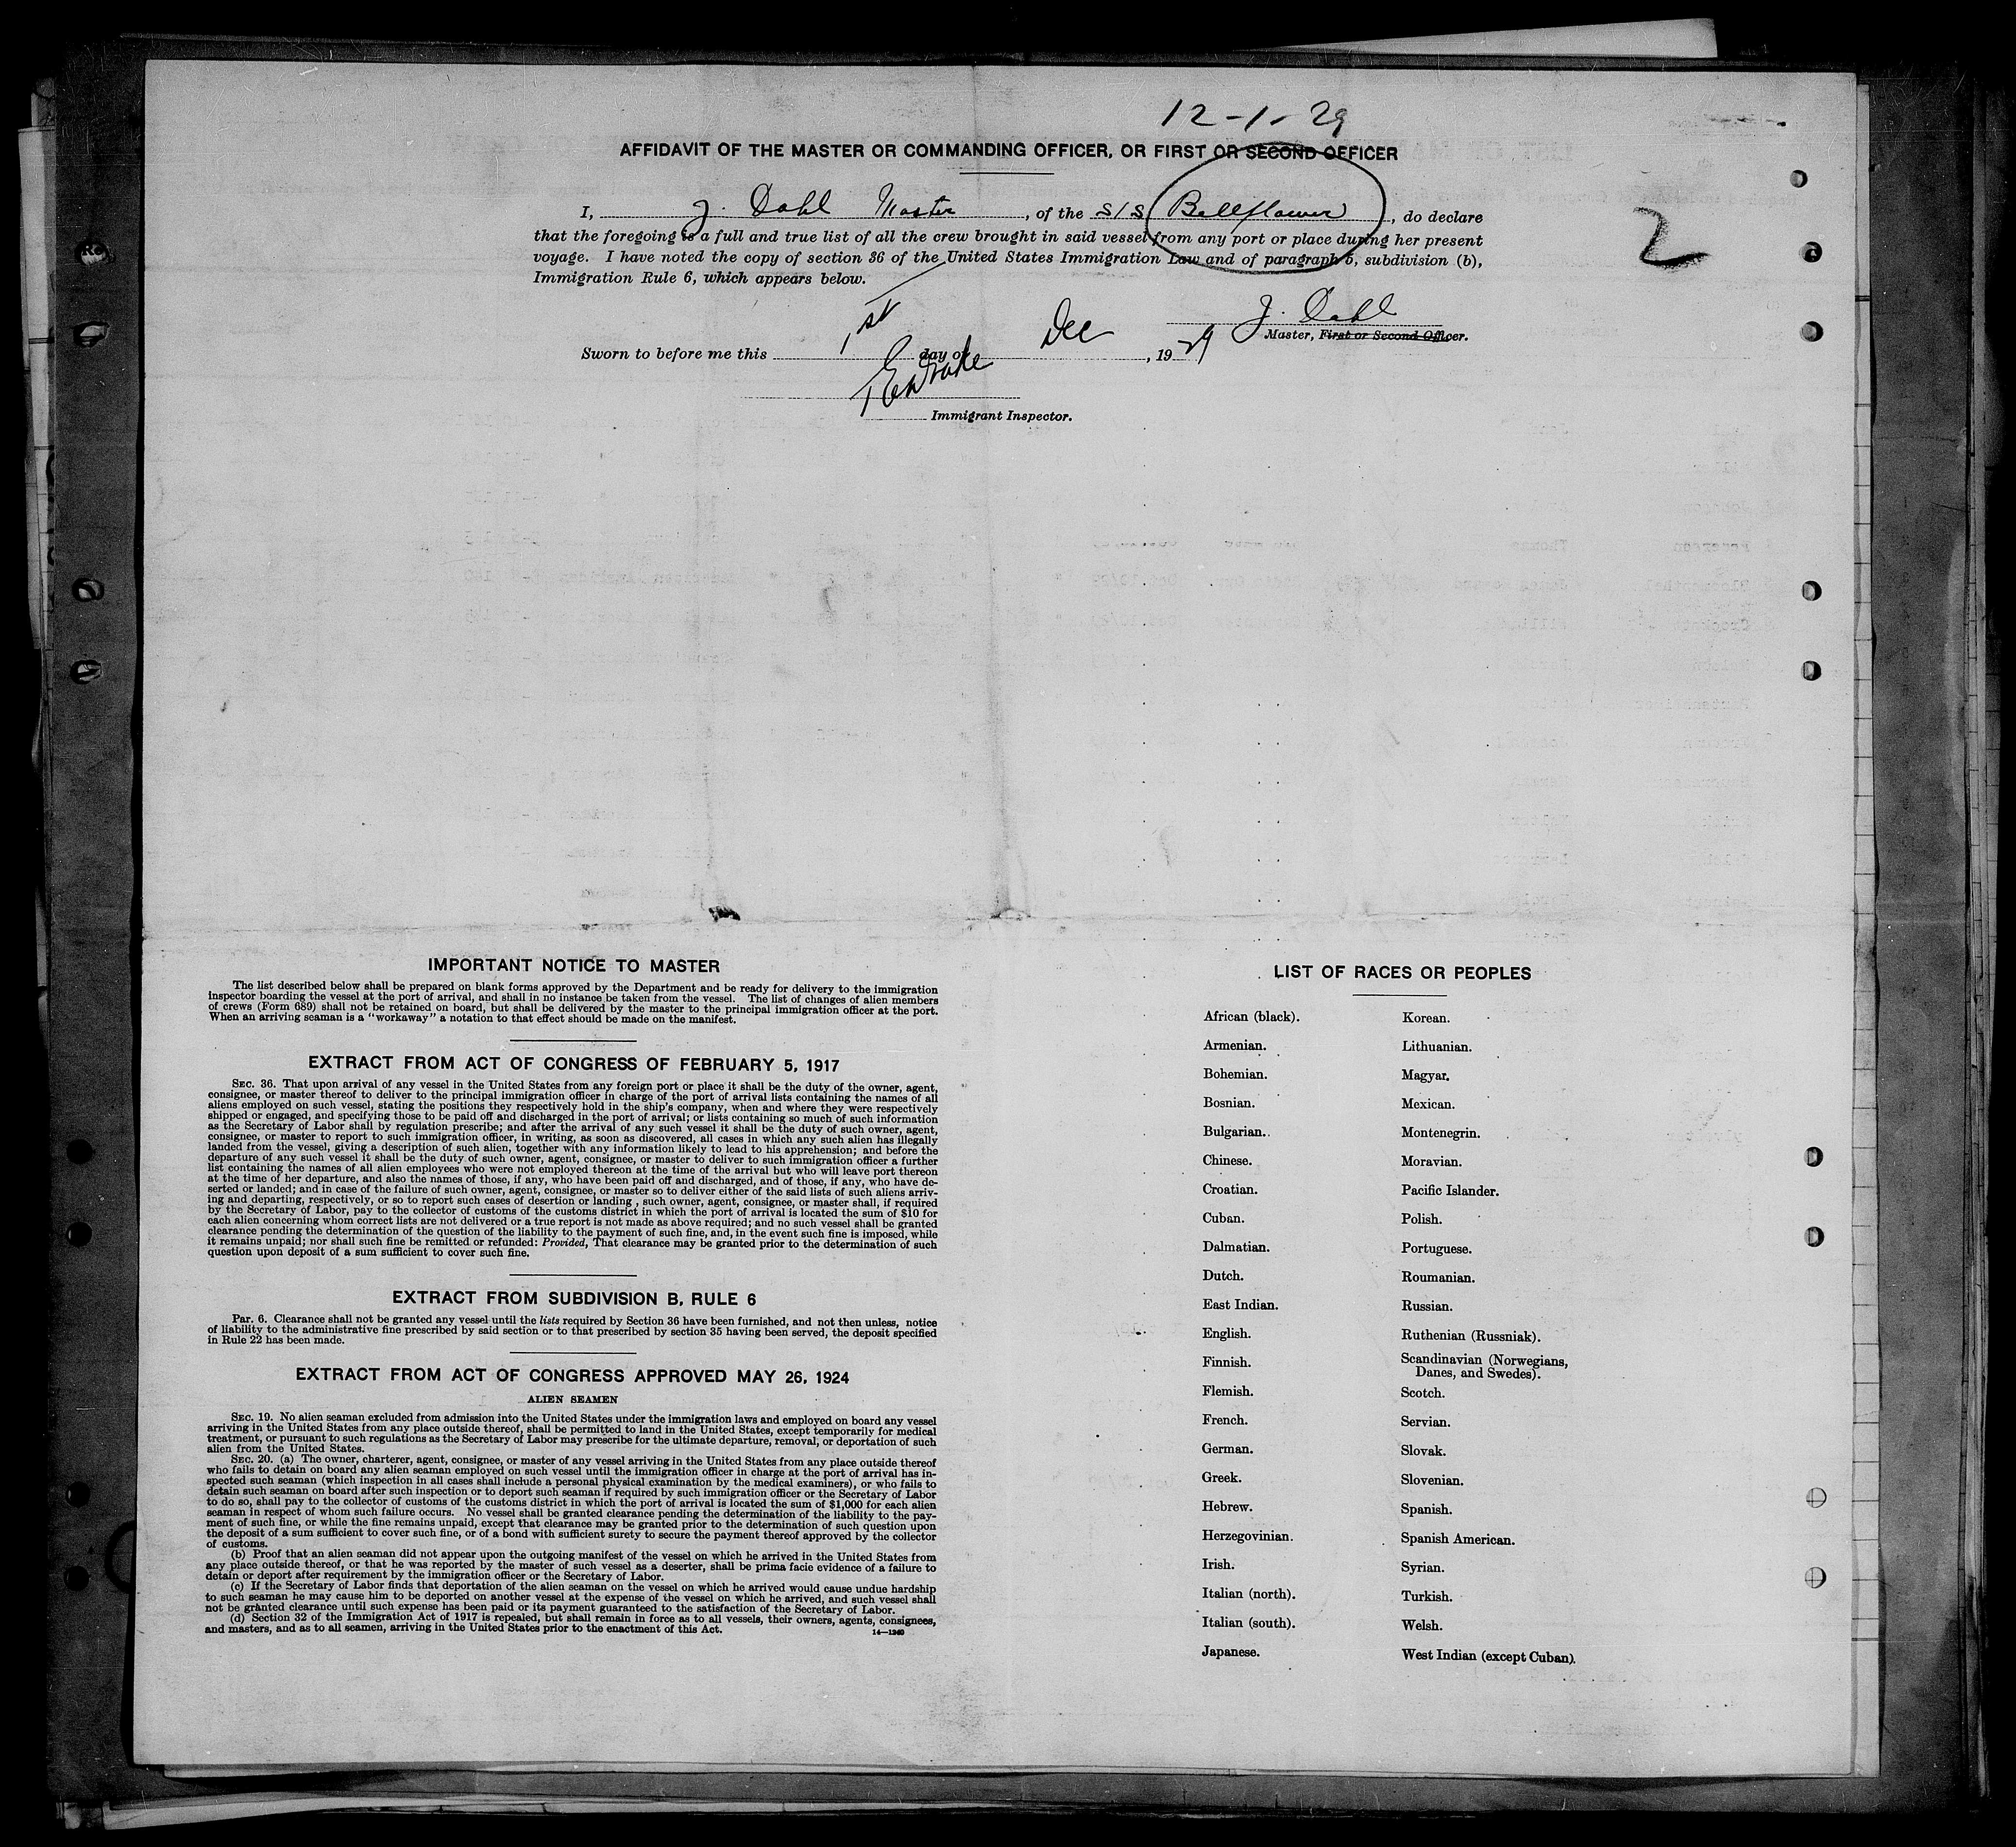 12-1-29
AFFIDAVIT OF THE MASTER OR COMMANDING OFFICER, OR FIRST OR SECOND OFFICER
I, J. Dahl Master, of the S/S Bellflower, do declare
that the foregoing is a full and true list of all the crew brought in said vessel from any port or place during her present
voyage. I have noted the copy of section 36 of the United States Immigration Law and of paragraph 6, subdivision (b),
Immigration Rule 6, which appears below.
2
J. Dahl
Master, First or Second Officer.
Sworn to before me this 1st day of Dec, 1929
Immigrant Inspector.
IMPORTANT NOTICE TO MASTER
The list described below shall be prepared on blank forms approved by the Department and be ready for delivery to the immigration
inspector boarding the vessel at the port of arrival, and shall in no instance be taken from the vessel. The list of changes of alien members
of crews (Form 689) shall not be retained on board, but shall be delivered by the master to the principal immigration officer at the port.
When an arriving seaman is a "workaway" a notation to that effect should be made on the manifest.
EXTRACT FROM ACT OF CONGRESS OF FEBRUARY 5, 1917
SEC. 36. That upon arrival of any vessel in the United States from any foreign port or place it shall be the duty of the owner, agent,
consignee, or master thereof to deliver to the principal immigration officer in charge of the port of arrival lists containing the names of all
aliens employed on such vessel, stating the positions they respectively hold in the ship's company, when and where they were respectively
shipped or engaged, and specifying those to be paid off and discharged in the port of arrival; or lists containing so much of such information
as the Secretary of Labor shall by regulation prescribe; and after the arrival of any such vessel it shall be the duty of such owner, agent,
consignee, or master to report to such immigration officer, in writing, as soon as discovered, all cases in which any such alien has illegally
landed from the vessel, giving a description of such alien, together with any information likely to lead to his apprehension; and before the
departure of any such vessel it shall be the duty of such owner, agent, consignee, or master to deliver to such immigration officer a further
list containing the names of all alien employees who were not employed thereon at the time of the arrival but who will leave port thereon
at the time of her departure, and also the names of those, if any, who have been paid off and discharged, and of those, if any, who have de-
serted or landed; and in case of the failure of such owner, agent, consignee, or master so to deliver either of the said lists of such aliens arriv-
ing and departing, respectively, or so to report such cases of desertion or landing, such owner, agent, consignee, or master shall, if required
by the Secretary of Labor, pay to the collector of customs of the customs district in which the port of arrival is located the sum of $10 for
each alien concerning whom correct lists are not delivered or a true report is not made as above required; and no such vessel shall be granted
clearance pending the determination of the question of the liability to the payment of such fine, and, in the event such fine is imposed, while
it remains unpaid; nor shall such fine be remitted or refunded: Provided, That clearance may be granted prior to the determination of such
question upon deposit of a sum sufficient to cover such fine.
EXTRACT FROM SUBDIVISION B, RULE 6
PAR. 6. Clearance shall not be granted any vessel until the lists required by Section 36 have been furnished, and not then unless, notice
of liability to the administrative fine prescribed by said section or to that prescribed by section 35 having been served, the deposit specified
in Rule 22 has been made.
EXTRACT FROM ACT OF CONGRESS APPROVED MAY 26, 1924
ALIEN SEAMEN
SEC. 19. No alien seaman excluded from admission into the United States under the immigration laws and employed on board any vessel
arriving in the United States from any place outside thereof, shall be permitted to land in the United States, except temporarily for medical
treatment, or pursuant to such regulations as the Secretary of Labor may prescribe for the ultimate departure, removal, or deportation of such
alien from the United States.
SEC. 20. (a) The owner, charterer, agent, consignee, or master of any vessel arriving in the United States from any place outside thereof
who fails to detain on board any alien seaman employed on such vessel until the immigration officer in charge at the port of arrival has in-
spected such seaman (which inspection in all cases shall include a personal physical examination by the medical examiners), or who fails to
detain such seaman on board after such inspection or to deport such seaman if required by such immigration officer or the Secretary of Labor
to do so, shall pay to the collector of customs of the customs district in which the port of arrival is located the sum of $1,000 for each alien
seaman in respect of whom such failure occurs. No vessel shall be granted clearance pending the determination of the liability to the pay-
ment of such fine, or while the fine remains unpaid, except that clearance may be granted prior to the determination of such question upon
the deposit of a sum sufficient to cover such fine, or of a bond with sufficient surety to secure the payment thereof approved by the collector
of customs.
(b) Proof that an alien seaman did not appear upon the outgoing manifest of the vessel on which he arrived in the United States from
any place outside thereof, or that he was reported by the master of such vessel as a deserter, shall be prima facie evidence of a failure to
detain or deport after requirement by the immigration officer or the Secretary of Labor.
(c) If the Secretary of Labor finds that deportation of the alien seaman on the vessel on which he arrived would cause undue hardship
to such seaman he may cause him to be deported on another vessel at the expense of the vessel on which he arrived, and such vessel shall
not be granted clearance until such expense has been paid or its payment guaranteed to the satisfaction of the Secretary of Labor.
(d) Section 32 of the Immigration Act of 1917 is repealed, but shall remain in force as to all vessels, their owners, agents, consignees,
and masters, and as to all seamen, arriving in the United States prior to the enactment of this Act.
LIST OF RACES OR PEOPLES
African (black).
Armenian.
Bohemian.
Bosnian.
Bulgarian.
Chinese.
Croatian.
Cuban.
Dalmatian.
Dutch.
East Indian.
English.
Finnish.
Flemish.
French.
German.
Greek.
Hebrew.
Herzegovinian.
Irish.
Italian (north).
Italian (south).
Japanese.
Korean.
Lithuanian.
Magyar.
Mexican.
Montenegrin.
Moravian.
Pacific Islander.
Polish.
Portuguese.
Roumanian.
Russian.
Ruthenian (Russniak).
Scandinavian (Norwegians,
Danes, and Swedes).
Scotch.
Servian.
Slovak.
Slovenian.
Spanish.
Spanish American.
Syrian.
Turkish.
Welsh.
West Indian (except Cuban).